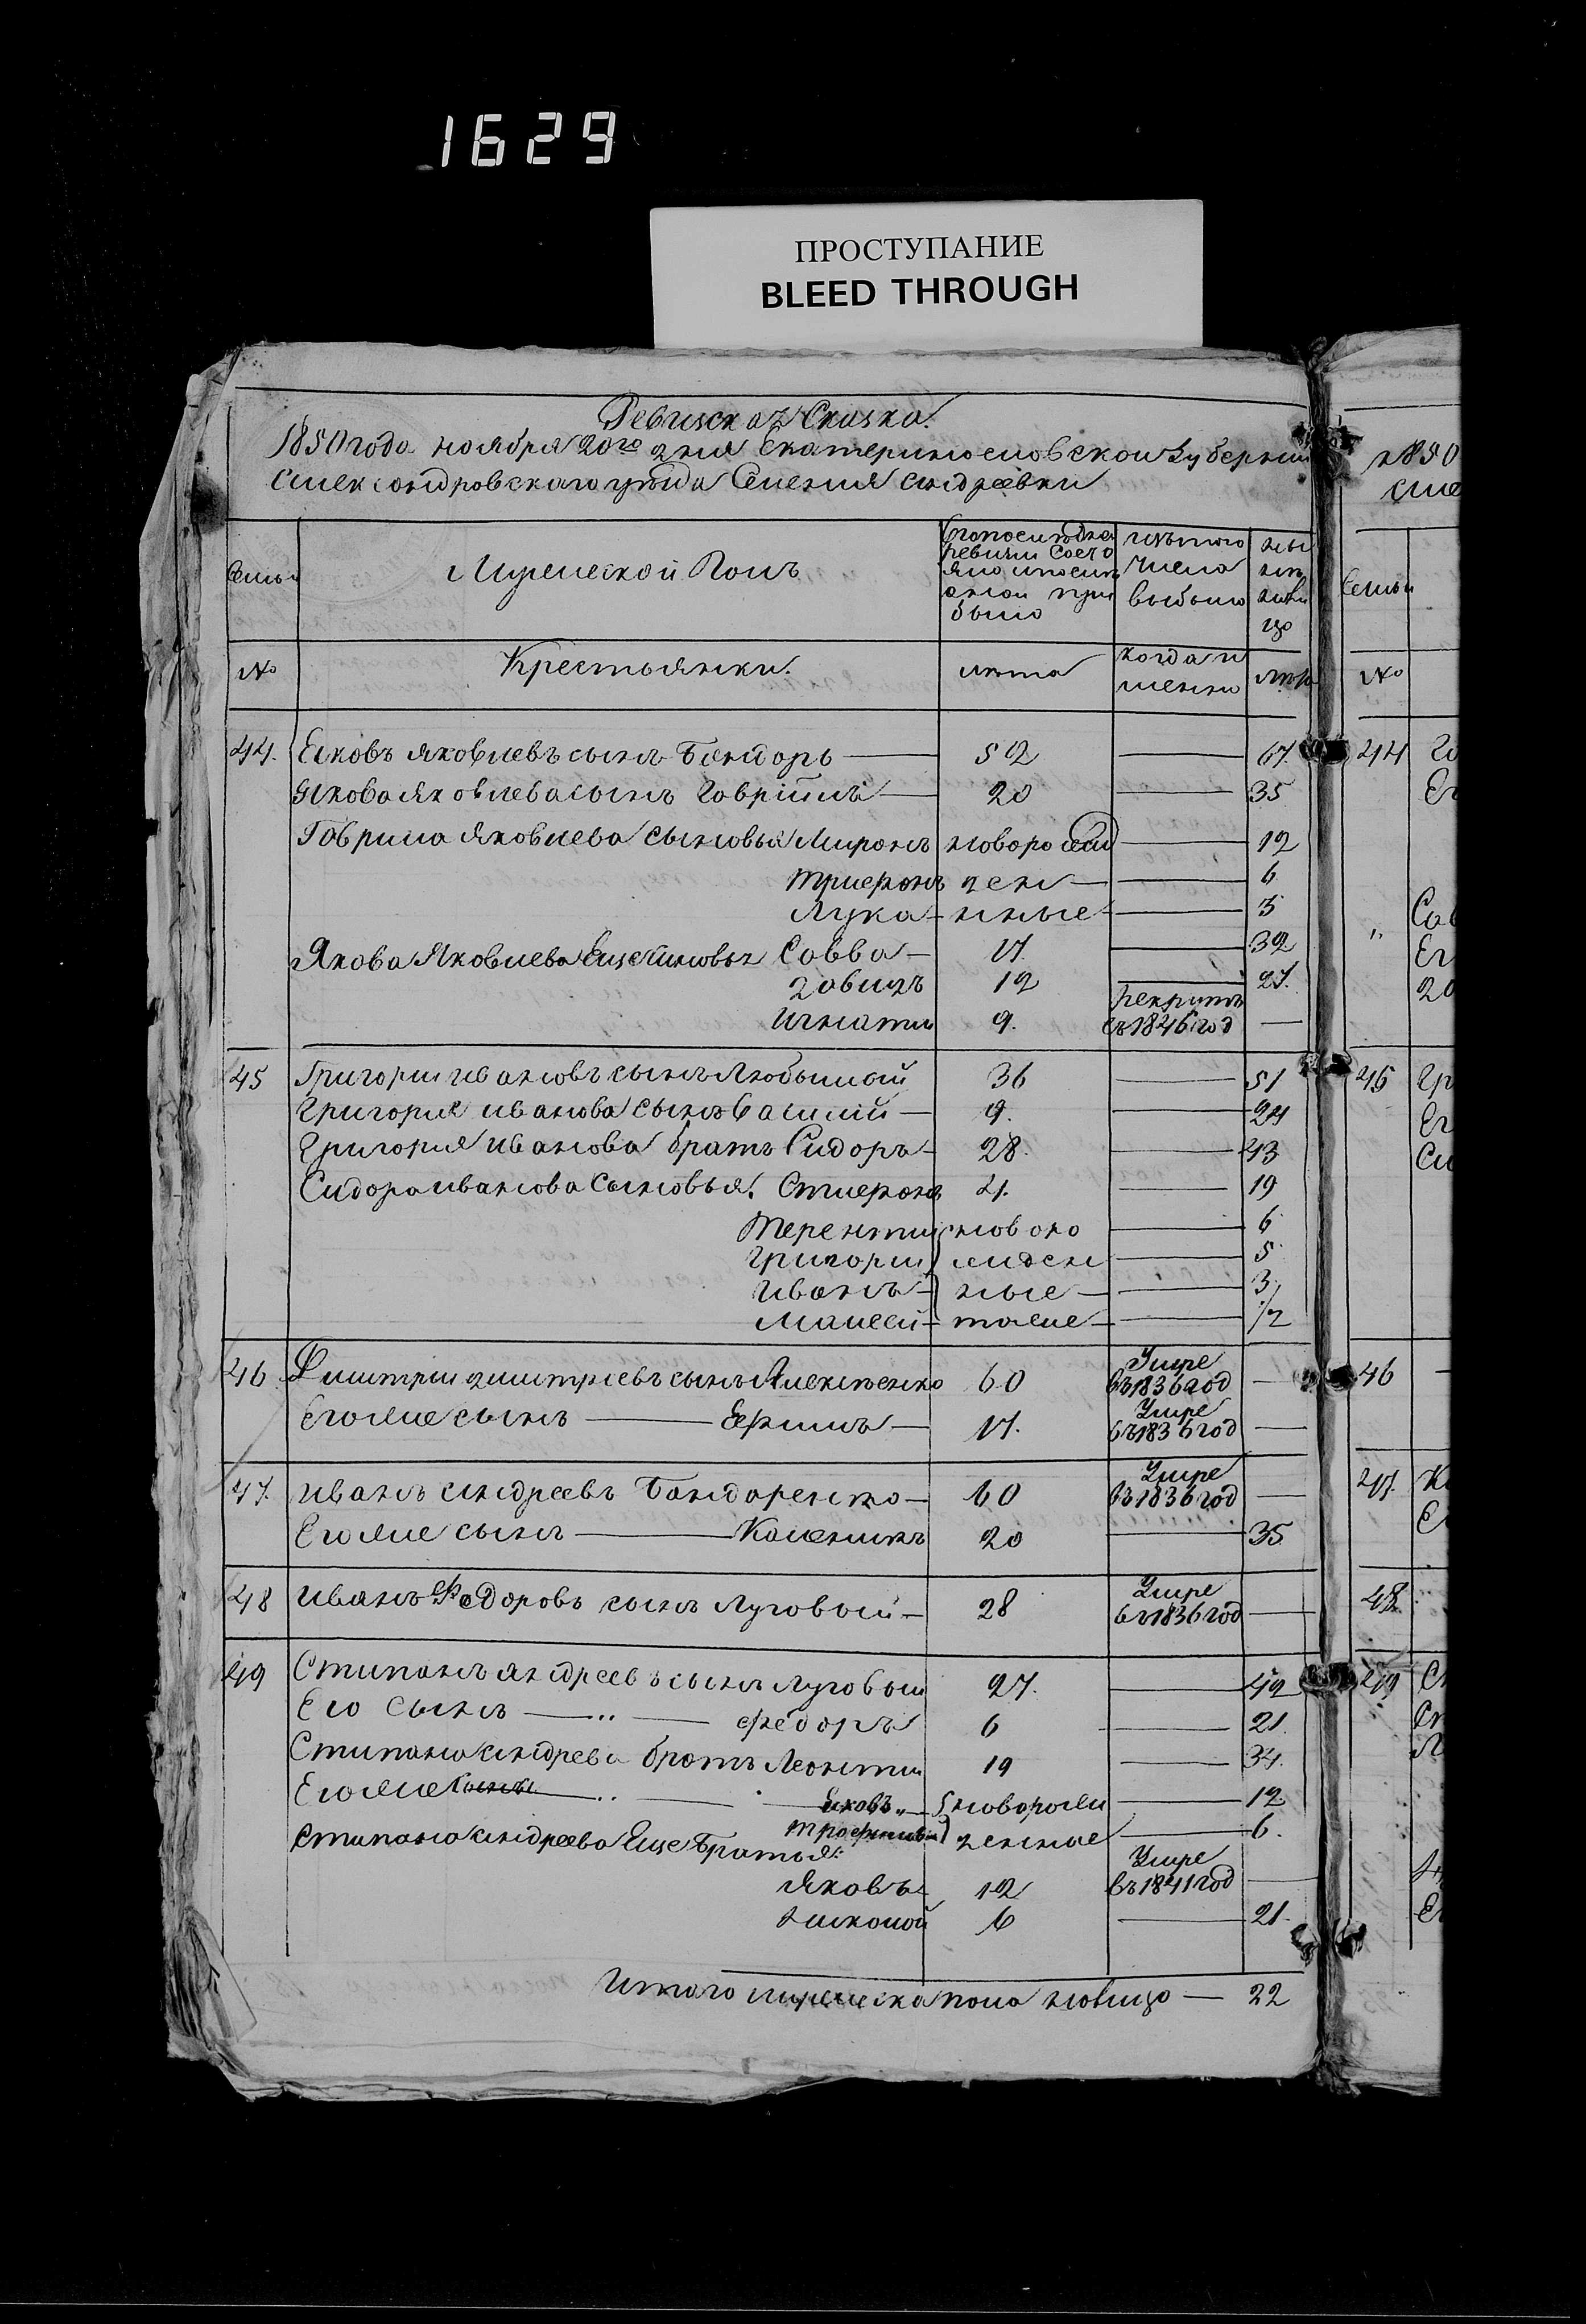 1629
ПРОСТУПАНИЕ
BLEED THROUGH
Ревизская Сказка.
1850 года ноября 20го дня Екатеринославской Губернии
Александровского уезда Селения Андреевки
Семьи
Мужеской Полъ
по последней ревизии состояло и после оной прибыло
изътого числа выбыло
ны не на ли цо
Семьи
№
Крестьянки.
лета
когда именно
лета
№
44. Яковъ яковлевъ сынъ Бандоръ — 52 — 67. 44
Якова яковлева сынъ Гавріилъ — 20 — 35
Гаврила Яковлева сыновья Миронъ новорож — 12
Трифонъ ден — 6
Лука — нные — 3
Якова Яковлева Еще сыновья Савва — 17. — 32
Давидъ 12 — 27.
Игнатий 9. рекрутъ въ 1846 год —
45 Григории ивановъ сынъ Любымой 36 — 51 45
Григория иванова сынъ Василий — 9. — 24
Григория иванова братъ Сидоръ — 28. — 43
Сидора иванова Сыновья. Стиефонъ 4. — 19
Терентии новоро — 6
Григории жден — 5
Иванъ — ные — 3
Моисей — тоже — 1/2
46 Дмитрии дмитриевъ сынъ Алексеенко 60 Умре въ 1836 год — 46
Его же сынъ — Ефимъ — 17. Умре въ 1836 год —
47. Иванъ Андреевъ Бондаренко — 60 Умре въ 1836 год — 47.
Его же сынъ — Каленикъ 20 — 35
48 Иванъ Федоровъ сынъ Луговый — 28 Умре въ 1836 год — 48
49 Стипанъ андреевъ сынъ Луговыи 27. — 42 49
Его сынъ — „ — федоръ 6 — 21
Стипана андреева братъ Леонтии 19 — 34.
Его же сыны — „ — Яковъ „ — новорож — 12
Трофимъ денные — 6.
Стипана андреева Еще Братья:
Яковъ — 12 Умре въ 1841 год —
6 — 21.
Итого мужеска пола налицо — 22